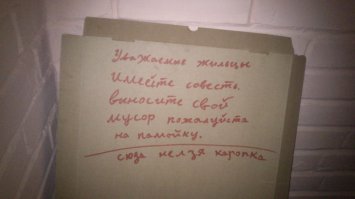 Уважаемые жильцы
имейте совесть.
выносите свой
мусор пожалуйста
на помойку.
сюда нелзя каропка